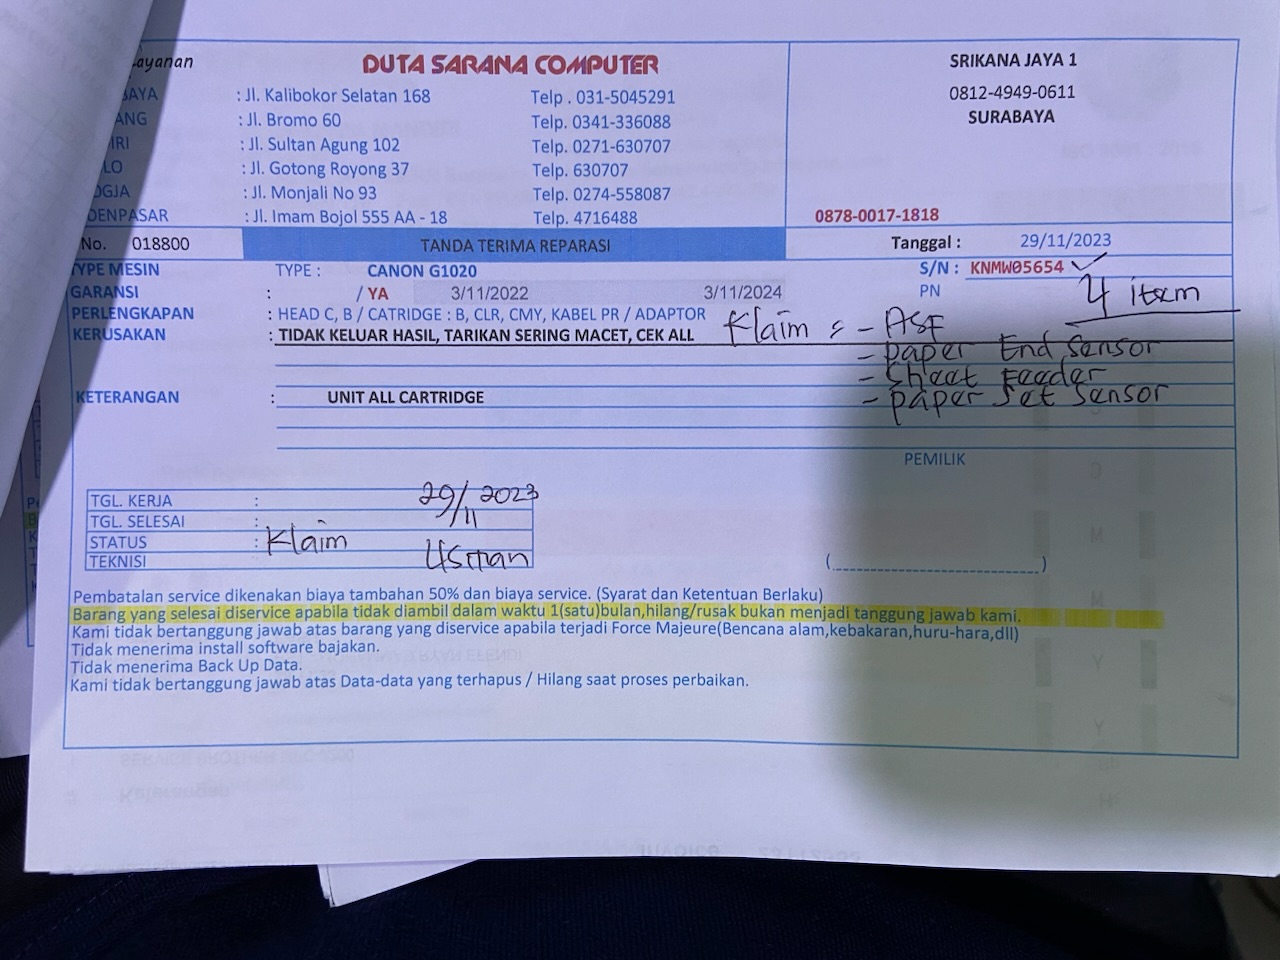 ayanan
DUTA SARANA COMPUTER
SRIKANA JAYA 1
BAYA : Jl. Kalibokor Selatan 168 Telp . 031-5045291
0812-4949-0611
ANG : Jl. Bromo 60 Telp. 0341-336088
SURABAYA
IRI : Jl. Sultan Agung 102 Telp. 0271-630707
LO : Jl. Gotong Royong 37 Telp. 630707
OGJA : Jl. Monjali No 93 Telp. 0274-558087
DENPASAR : Jl. Imam Bojol 555 AA - 18 Telp. 4716488
0878-0017-1818
No. 018800 TANDA TERIMA REPARASI Tanggal : 29/11/2023
TYPE MESIN TYPE : CANON G1020 S/N : KNMW05654 ✓
GARANSI : / YA 3/11/2022 3/11/2024 PN 4 item
PERLENGKAPAN : HEAD C, B / CATRIDGE : B, CLR, CMY, KABEL PR / ADAPTOR
KERUSAKAN : TIDAK KELUAR HASIL, TARIKAN SERING MACET, CEK ALL Klaim : - ASF
- paper End Sensor
- Sheet Feeder
KETERANGAN : UNIT ALL CARTRIDGE - paper Set Sensor
PEMILIK
TGL. KERJA : 29/11 2023
TGL. SELESAI :
STATUS : Klaim
TEKNISI Usman
(............................)
Pembatalan service dikenakan biaya tambahan 50% dan biaya service. (Syarat dan Ketentuan Berlaku)
Barang yang selesai diservice apabila tidak diambil dalam waktu 1(satu)bulan,hilang/rusak bukan menjadi tanggung jawab kami.
Kami tidak bertanggung jawab atas barang yang diservice apabila terjadi Force Majeure(Bencana alam,kebakaran,huru-hara,dll)
Tidak menerima install software bajakan.
Tidak menerima Back Up Data.
Kami tidak bertanggung jawab atas Data-data yang terhapus / Hilang saat proses perbaikan.